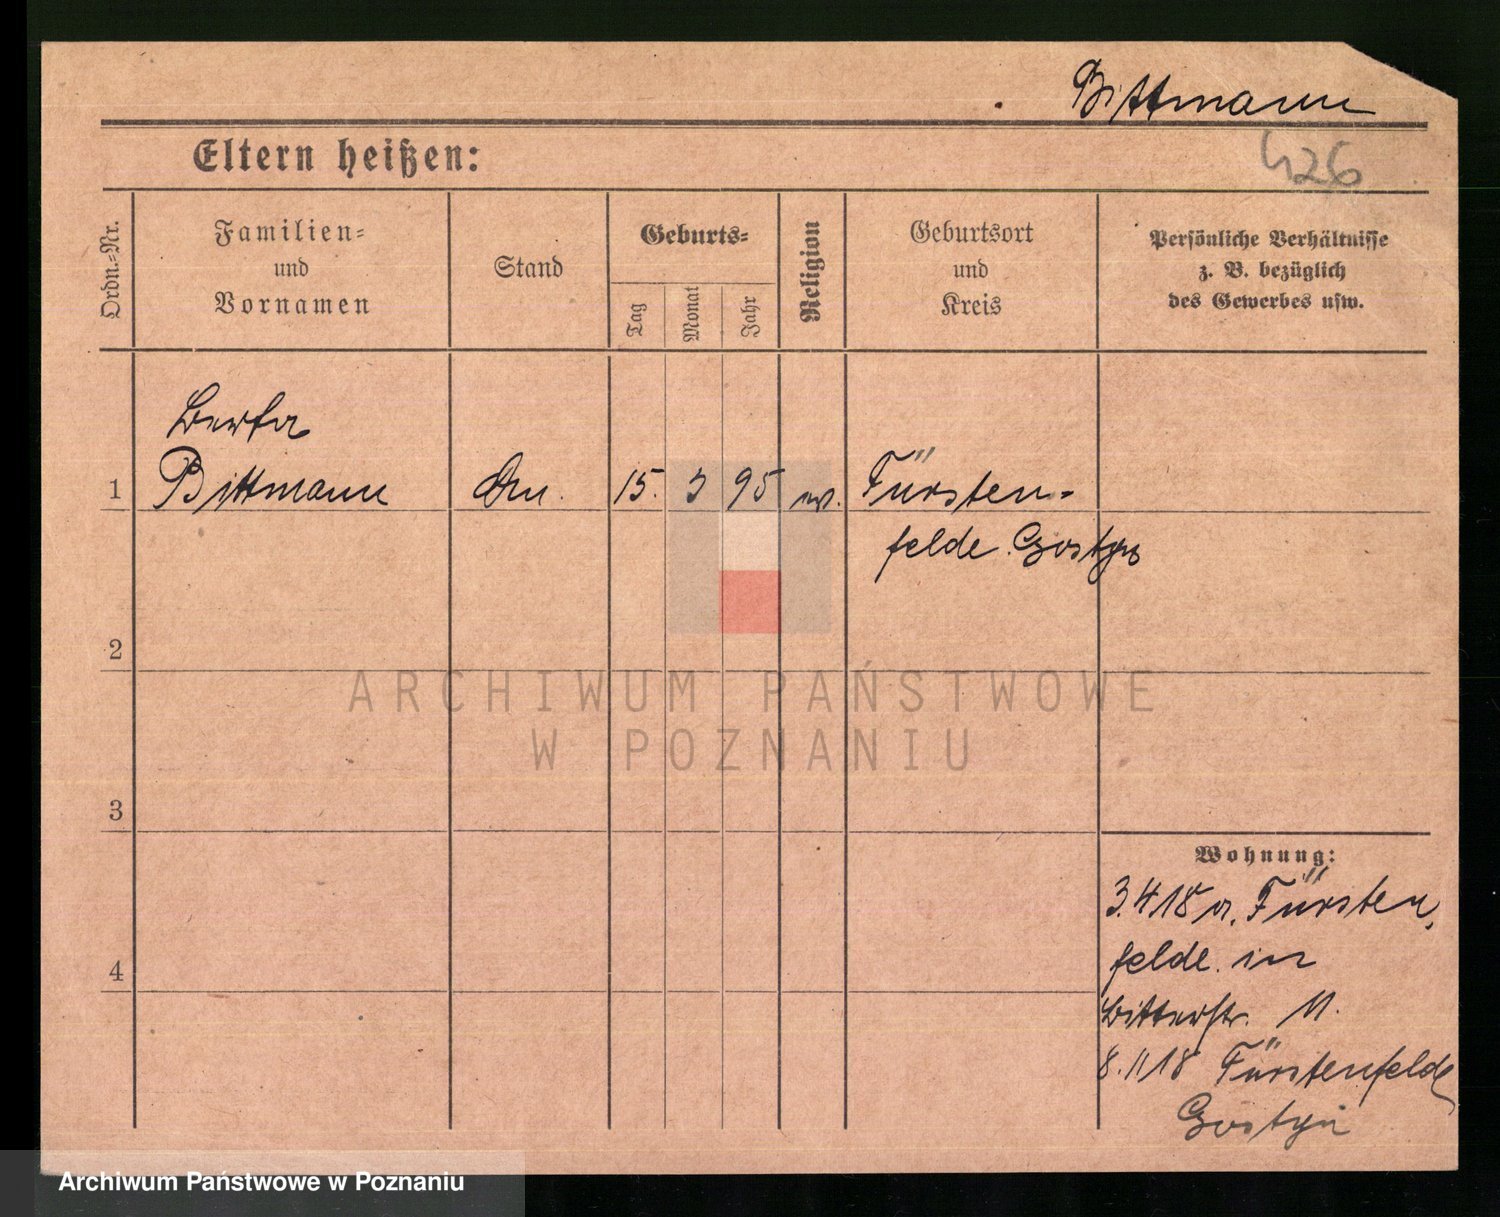 Bittmann
Eltern heißen:
426
Ordn.-Nr.
Familien-
und
Vornamen
Stand
Geburts-
Tag
Monat
Jahr
Religion
Geburtsort
und
Kreis
Persönliche Verhältnisse
z. B. bezüglich
des Gewerbes usw.
Berta
1 Bittmann 15. 3 95 ev. Fürsten-
felde Gostyn
2
ARCHIWUM PAŃSTWOWE
W POZNANIU
3
Wohnung:
3.4 18 a. Fürsten,
felde in
4
Bitterstr. 11.
8. 11 18 Fürstenfelde
Gostyn
Archiwum Państwowe w Poznaniu